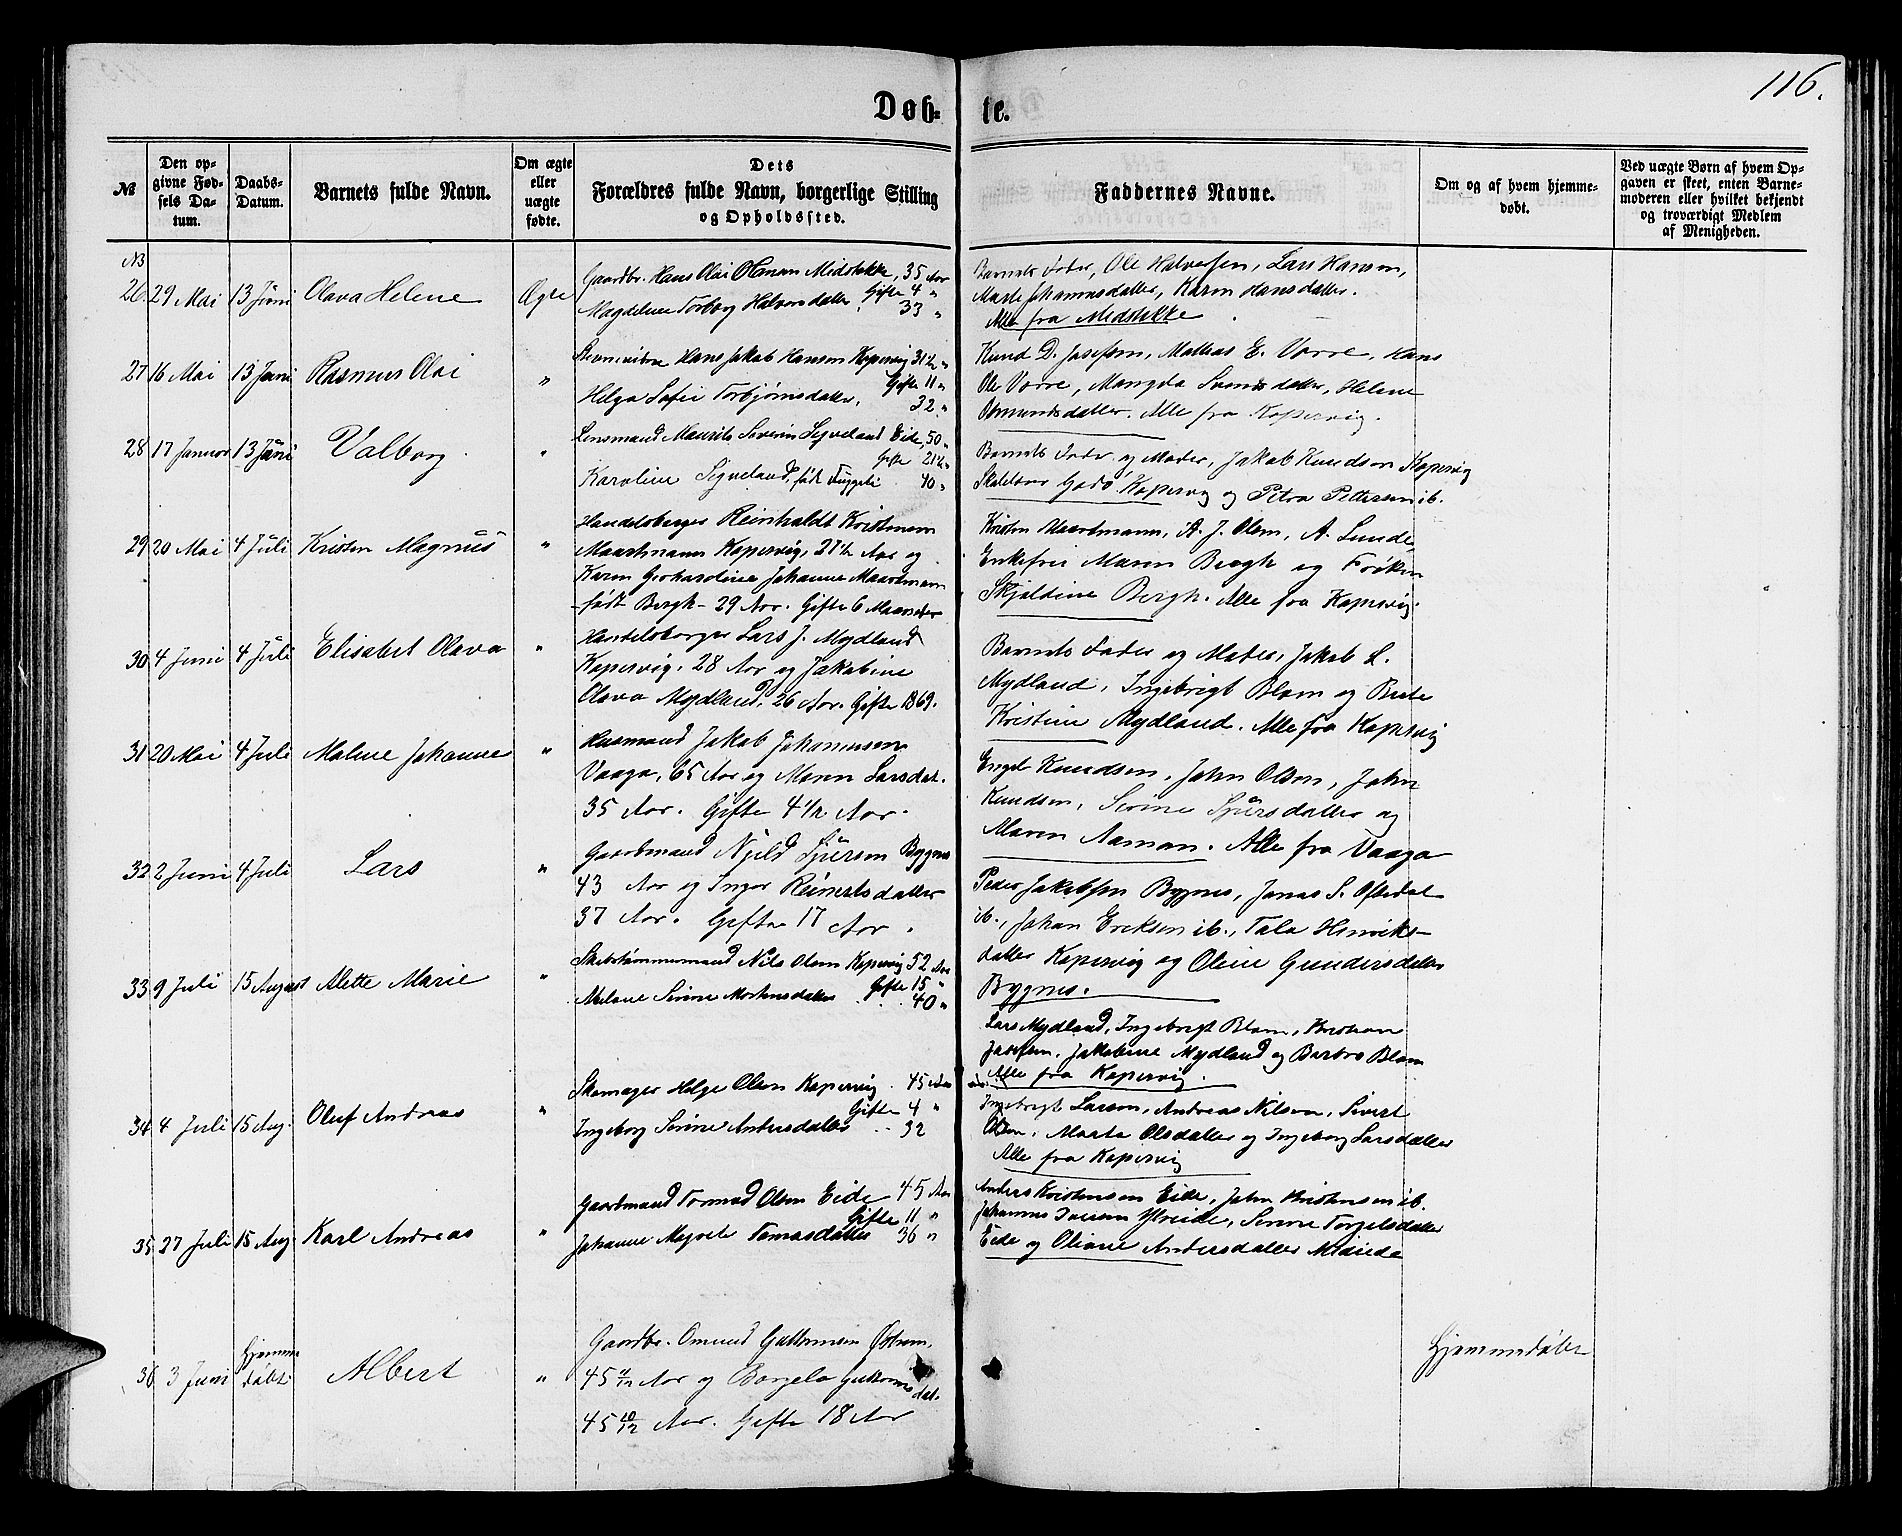 116.
Døb- te.
No
Den opgivne Fødsels Datum.
Daabs-Datum.
Barnets fulde Navn.
Om ægte eller uægte fødte.
Dets Forældres fulde Navn, borgerlige Stilling og Opholdssted.
Faddernes Navne.
Om og af hvem hjemmedøbt.
Ved uægte Børn af hvem Opgaven er skeet, enten Barnemoderen eller hvilket bekjendt og troværdigt Medlem af Menigheden.
26 29 Mai 13 Juni Olava Helene Ægte
Gaardbr. Hans Olai Midstøkke, 35 Aar
Gifte 4 "
Magdelene Torborg Halvorsdatter 33 "
Barnets Fader, Ole Halvorsen, Lars Hansen,
Marte Johannesdatter, Karen Hansdatter.
Alle fra Midstøkke
27 16 Mai 13 Juni Rasmus Olai "
Hans Jakob Hansen Kopervig 31½ "
Gifte 11 "
Helga Sofie Torbjørnsdatter, 32 "
Knud D. Josefsen, Mathias E. Vorre, Hans
Ols Vorre, Svendsdatter, Helene
Osmundsdatter. Alle fra Kopervig.
28 17 Januar 13 Juni Valborg "
Lensmand Maurits Severin Sqveland Eide, 50 "
Gifte 21½ "
Karoline Sqveland, født 40 "
Barnets Fader og Moder, Jakob Knudsen Kopervig
Kopervig og Petra Pettersen ib.
29 20 Mai 4 Juli Kristen Magnus "
Handelsborger Reinholdt Kristensen
Maartmann Kopervig, 27½ Aar og
Karen Gerhardine Johanne Maartmann
født Bergh - 29 Aar. Gifte 6 Maaneder
Kristen Maartmann, A. J. Olsen, A. Lunde,
Enkefru Maren Bergh og Frøken
Skjoldine Bergh. Alle fra Kopervig.
30 4 Juni 4 Juli Elisabet Olava "
Handelsborger Lars J. Mydland
Kopervig, 28 Aar og Jakobine
Olava Mydland, 26 Aar. Gifte 1869.
Barnets Fader og Moder, Jakob L.
Mydland, Ingebrigt Blom og Berte
Kristine Mydland. Alle fra Kopervig
31 20 Mai 4 Juli Malene Johanne "
Husmand Jakob Johannesen
Vaaga, 65 Aar og Maren Larsdat.
35 Aar. Gifte 4½ Aar.
Engel Knudsen, John Olsen, John
Knudsen, Serine Sjursdatter og
Maren Aaman. Alle fra Vaaga
32 2 Juni 4 Juli Lars "
Gaardmand Njeld Sjursen Bygnes
43 Aar og Inger Reinertsdatter
37 Aar. Gifte 17 Aar.
Peder Jakobsen Bygnes, Jonas S. Oftedal
ib., Johan Eriksen ib., Tala Henriks-
datter Kopervig og Oline Gundersdatter
Bygnes.
33 9 Juli 15 August Alette Marie "
Skibstømmermand Nils Olsen Kopervig 52 Aar
Gifte 15 "
Malene Serine Mortensdatter 40 "
Lars Mydland, Ingebrigt Blom, Kristian
Josefsen, Jakobine Mydland og Barbro Blom
Alle fra Kopervig.
34 4 Juli 15 Aug. Oluf Andreas "
Skomager Helge Olsen Kopervig 45 Aar
Gifte 4 "
Ingeborg Serine Andersdatter 32
Ingebrigt Larsen, Andreas Nilsen, Sivert
Olsen, Marta Olsdatter og Ingeborg Larsdatter
Alle fra Kopervig
35 27 Juli 15 Aug. Karl Andreas "
Gaardmand Tormod Olsen Eide 45 Aar
Gifte 11 "
Johanne Tomasdatter 36 "
Anders Kristensen Eide, John Kristensen ib.
Johannes Iversen Ytreide, Serine Torgelsdatter
Eide og Oliane Andersdatter Medeide
36 3 Juni Hjemmedøbt Albert "
Gaardbr. Omund Guttormsen Østrem,
45 Aar og Borgela Guttormsdat.
45 10/12 Aar. Gifte 18 Aar
Hjemmedøbt